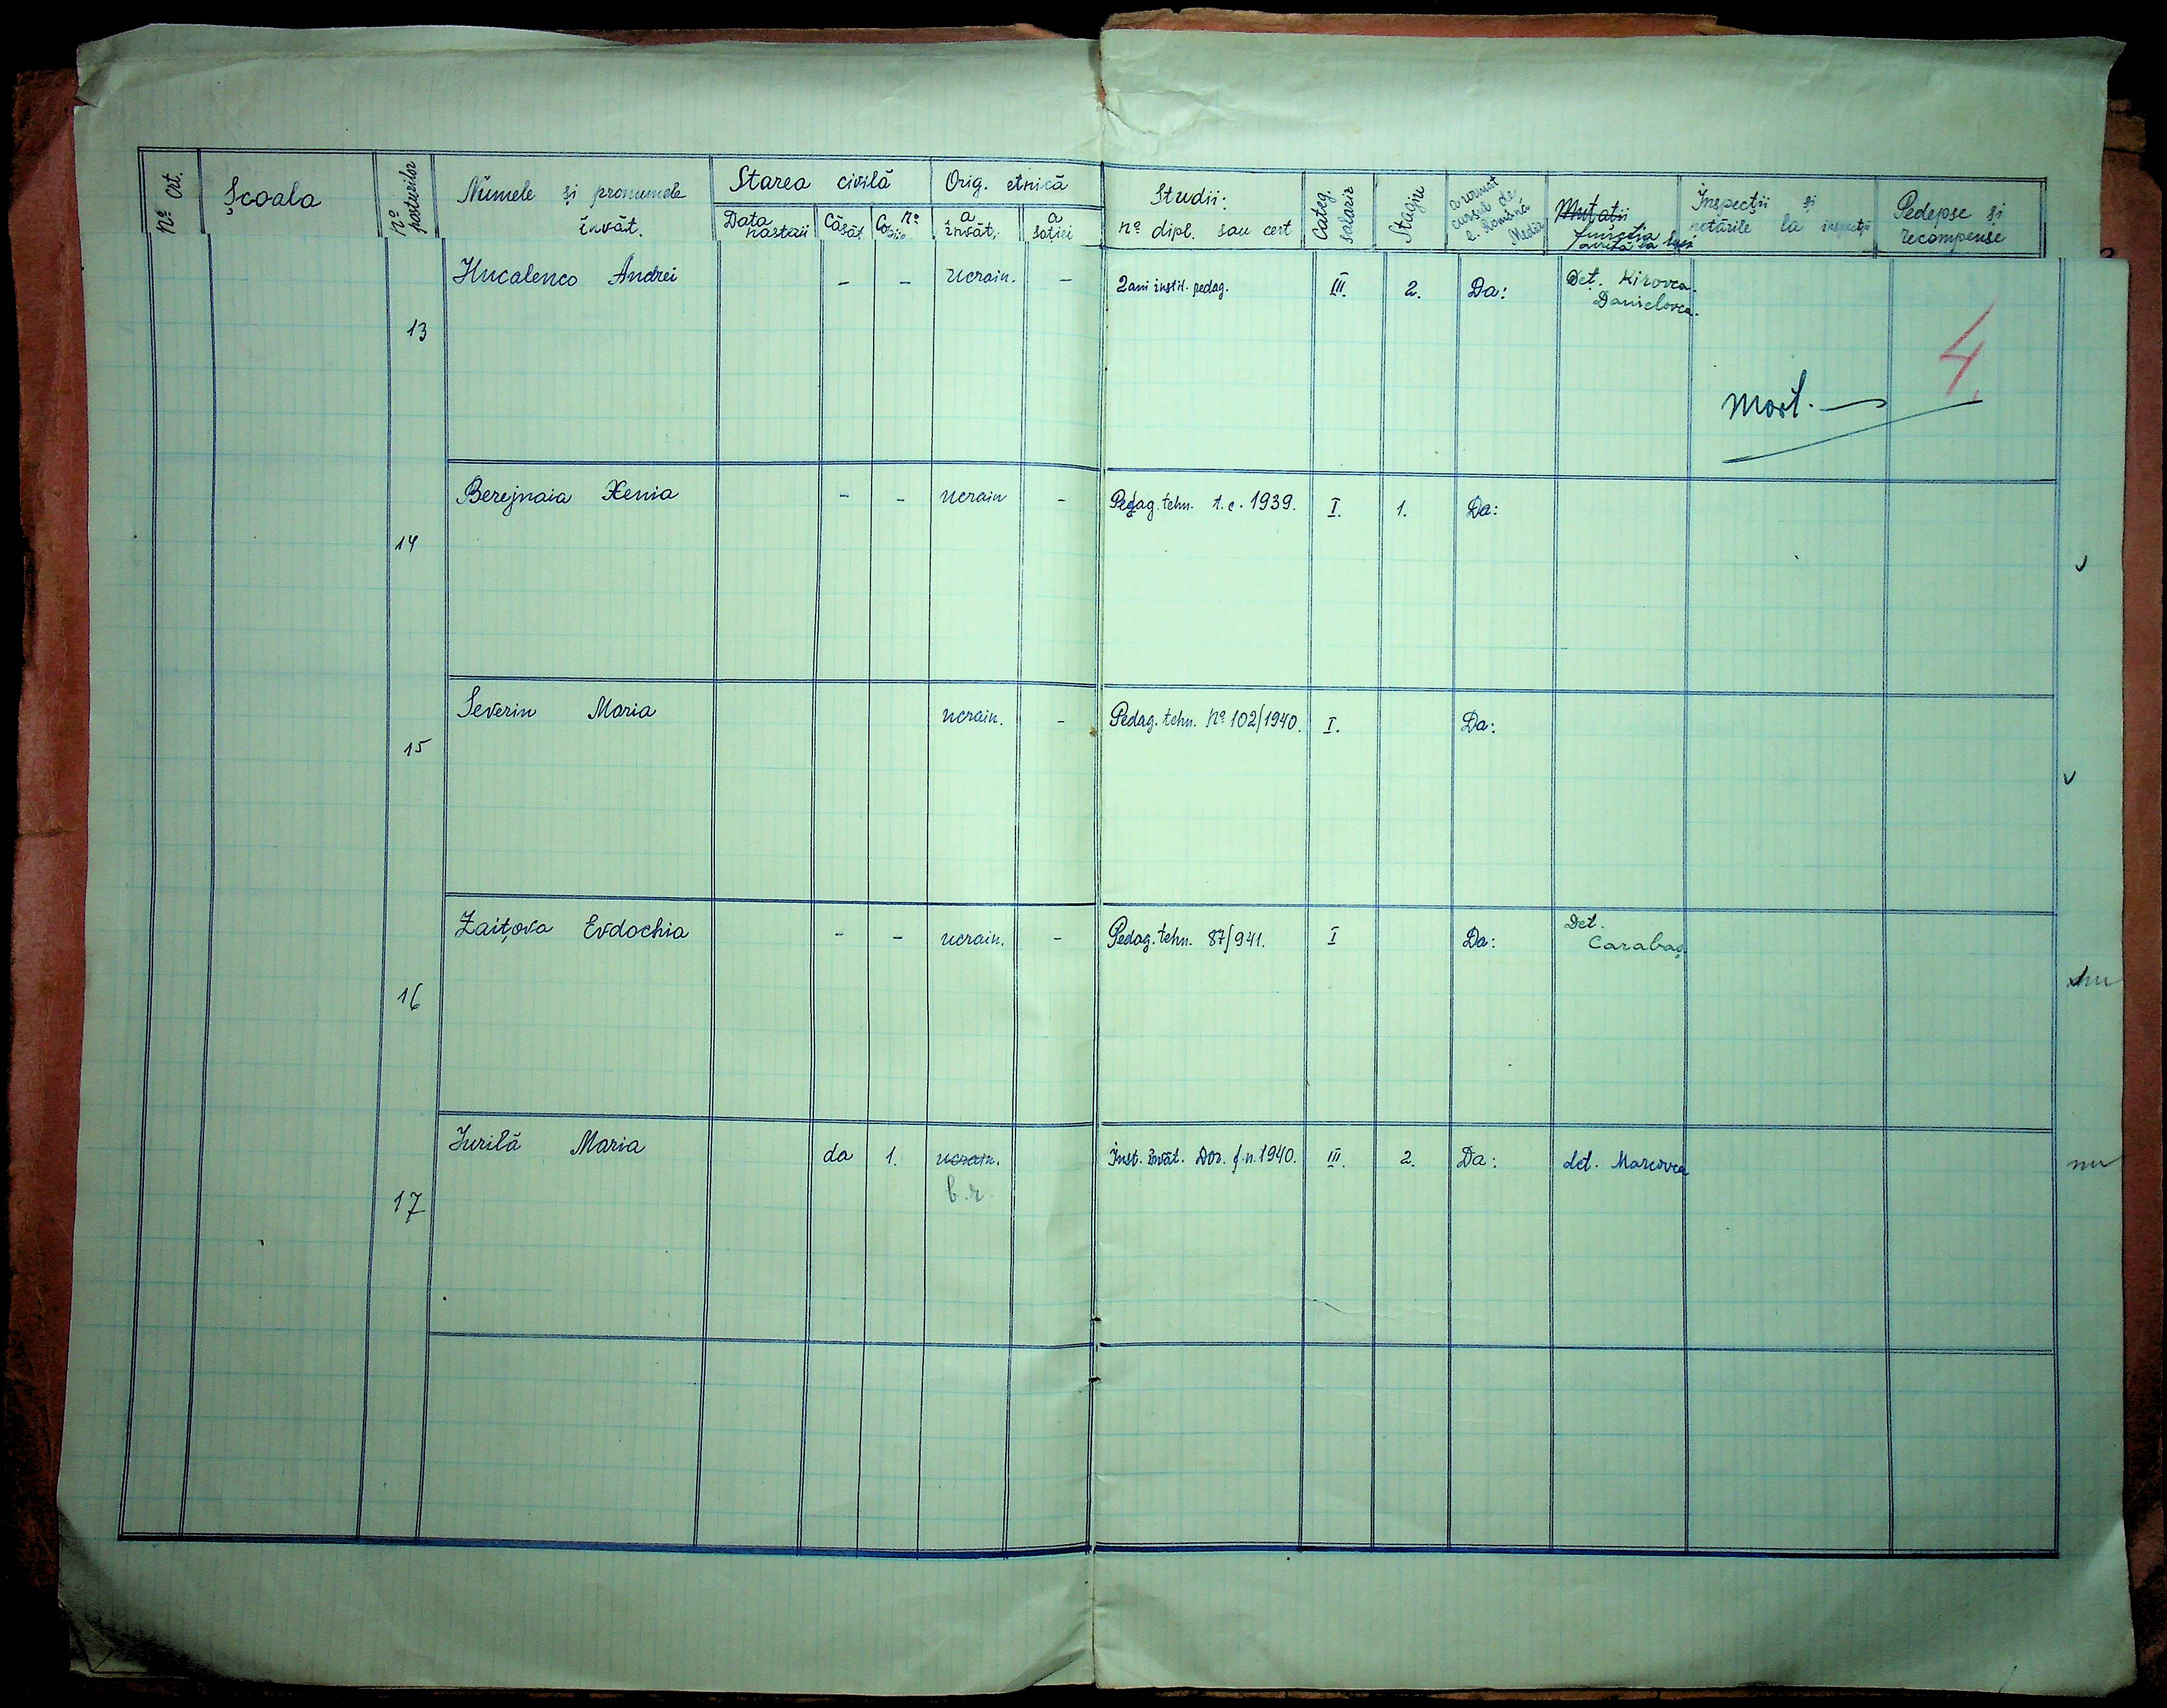 Nº crt.
Școala
Nº posturilor
Numele și pronumele
învăt.
Starea civilă
Data nasterii
Căsăt.
Nº Copii
Orig. etnică
a învăt.
a sotiei
Studii:
nº dipl. sau cert
Categ. salariz
Stagiu
a urmat cursul de l. Română Media
Mutatii
functia avută
Inspecții și
notările la inspecții
Pedepse și
recompense
13 Hucalenco Andrei - - Ucrain. - 2 ani instit. pedag. III. 2. Da: Det. Kirovca.
Danielovca.
4
Mort.
14 Berejnaia Xenia - - Ucrain - Pedag. tehn. t.c. 1939. I. 1. Da:
15 Severin Maria ucrain. - Pedag. tehn. Nº 102/1940. I. Da:
16 Zaițova Evdochia - - ucrain. - Pedag. tehn. 87/941. I Da: Det.
Carabaș.
nu
17 Jurilă Maria da 1. ucrain. Inst. învăt. Dor. f.n. 1940. III. 2. Da: det. Marcovca
b.r.
nu